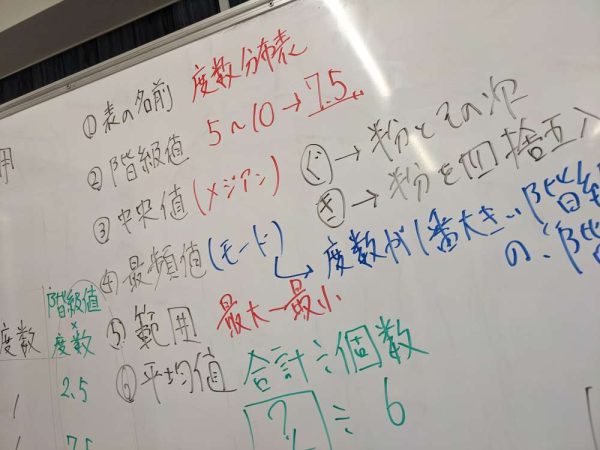 ①表の名前 度数分布表
②階級値 5～10→7.5
③中央値(メジアン)
ぐ→半分とその次
き→半分を四捨五入
④最頻値(モード)
→度数が1番大きい階級
の、階
⑤範囲 最大－最小
⑥平均値 合計÷個数
? ÷ 6
階級値
×
度数 度数
1 2.5
1 7.5